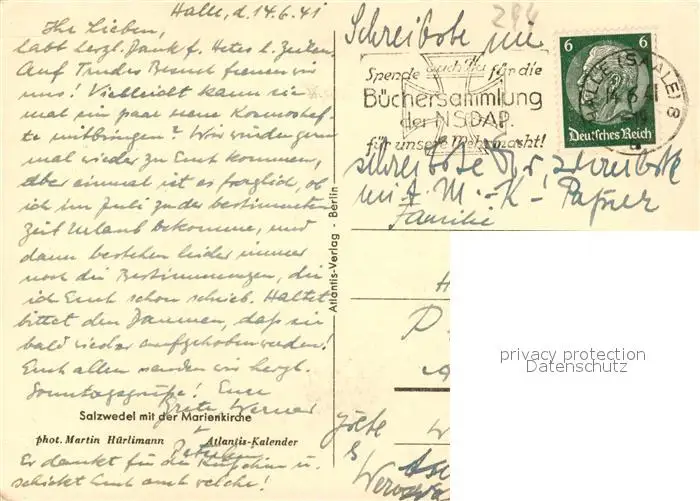 Halle, d. 14.6.41
Ihr Lieben,
habt herzl. Dank f. Hetes l. Zeilen.
Auf Trudes Besuch freuen wir
uns! Vielleicht kann sie
mal ein paar neue Kosmoshef-
te mitbringen? Wir würden gern
mal wieder zu Euch kommen,
aber einmal ist es fraglich, ob
ich im Juli zu der bestimmten
Zeit Urlaub bekomme, und
dann bestehen leider immer
noch die Bestimmungen, die
ich Euch schon schrieb. Haltet
bittet den Daumen, daß sie
bald wieder aufgehoben werden!
Euch allen senden wir herzl.
Sonntagsgrüße! Eure
Grete Werner
Salzwedel mit der Marienkirche
phot. Martin Hürlimann Atlantis-Kalender
Er dankt für die u.
schickt Euch auch welche!
Atlantis-Verlag - Berlin
294
Schreibste mir
Spende auch Du für die
Büchersammlung
der NSDAP.
für unsere Wehrmacht!
6 6
Deutsches Reich
HALLE (SAALE) 8
14.6.41
schreibste Dir, schreibste
mit M.-K-Papier
Familie
privacy protection
Datenschutz